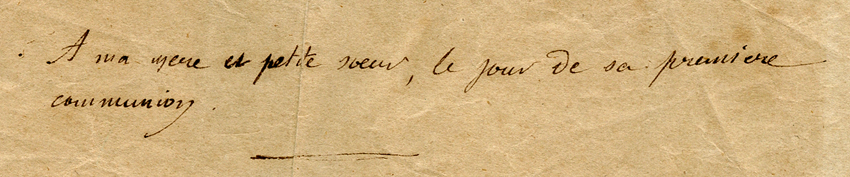 A ma mere et petite soeur, le jour de sa premiere
communion.